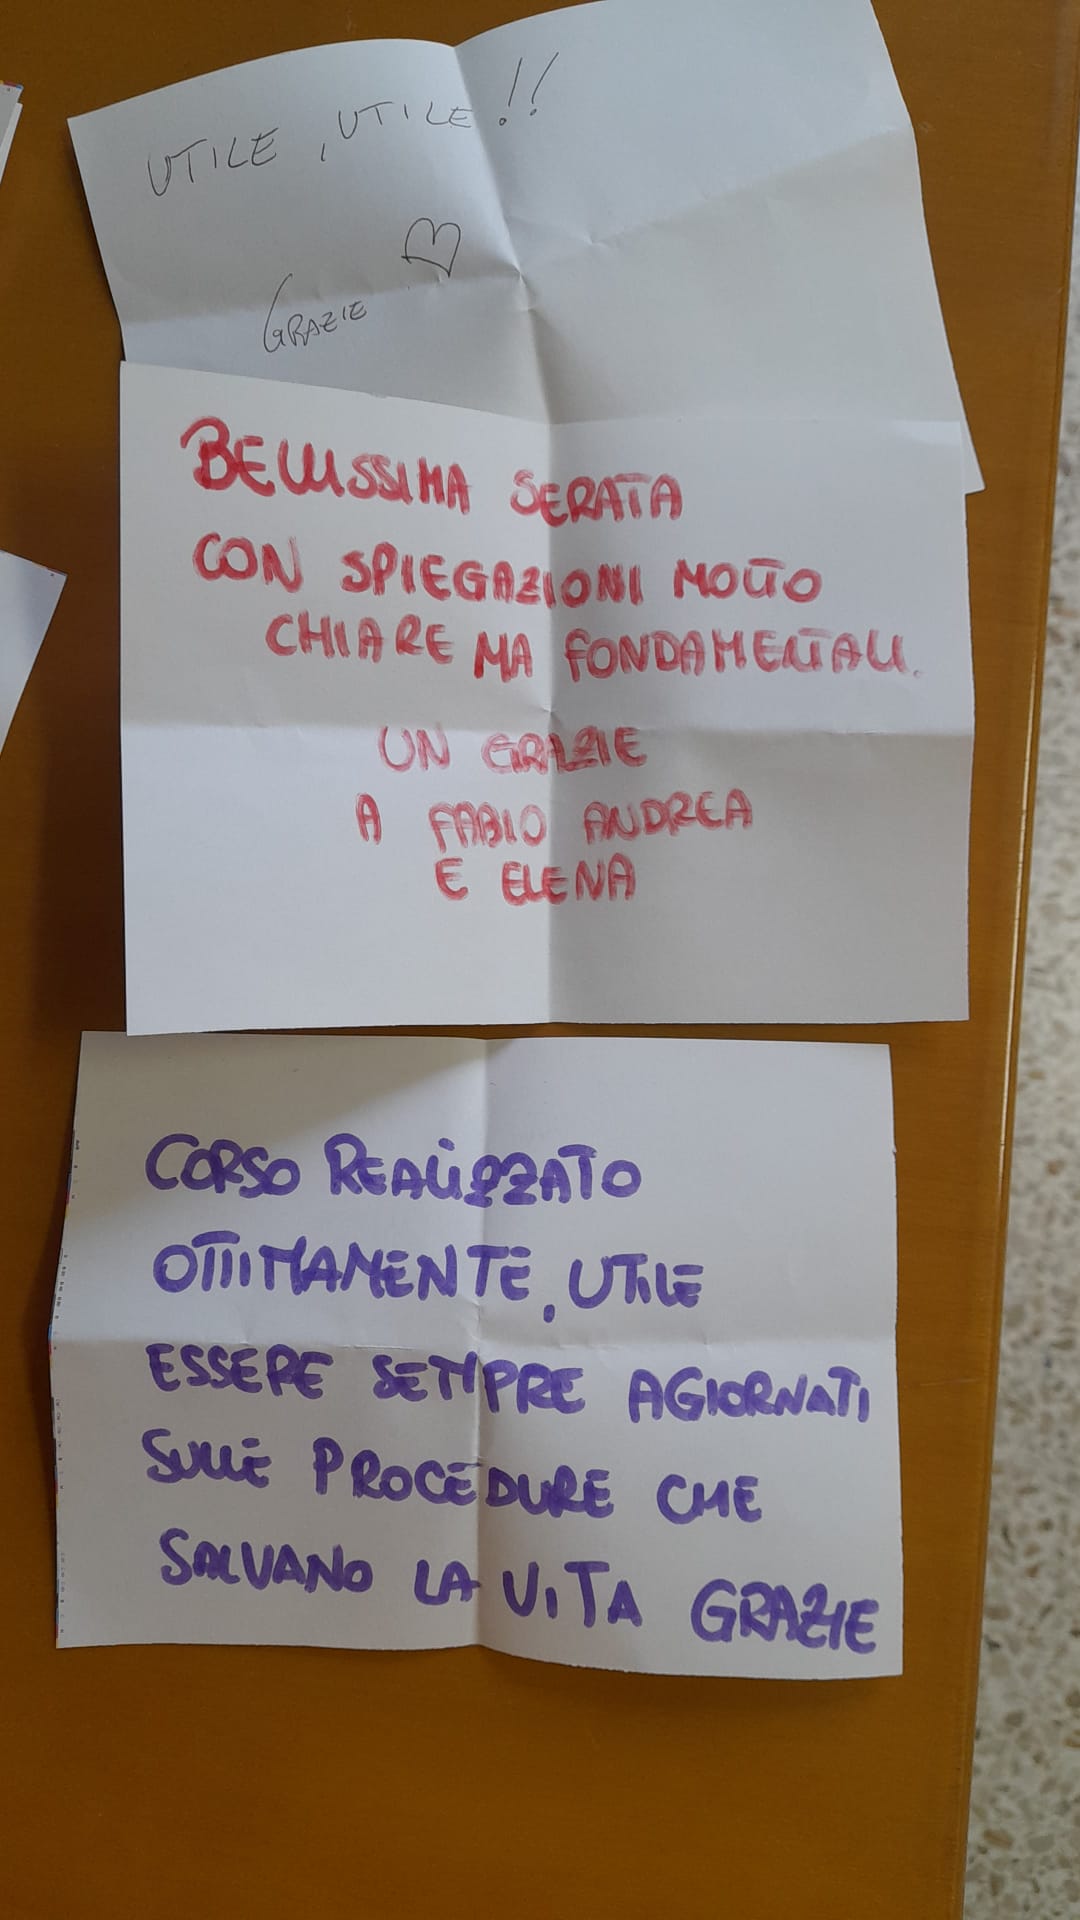 UTILE, UTILE!!
GRAZIE
BELLISSIMA SERATA
CON SPIEGAZIONI MOLTO
CHIARE MA FONDAMENTALI.
UN GRAZIE
A FABIO ANDREA
E ELENA
CORSO REALIZZATO
OTTIMAMENTE, UTILE
ESSERE SEMPRE AGIORNATI
SULLE PROCEDURE CHE
SALVANO LA VITA GRAZIE